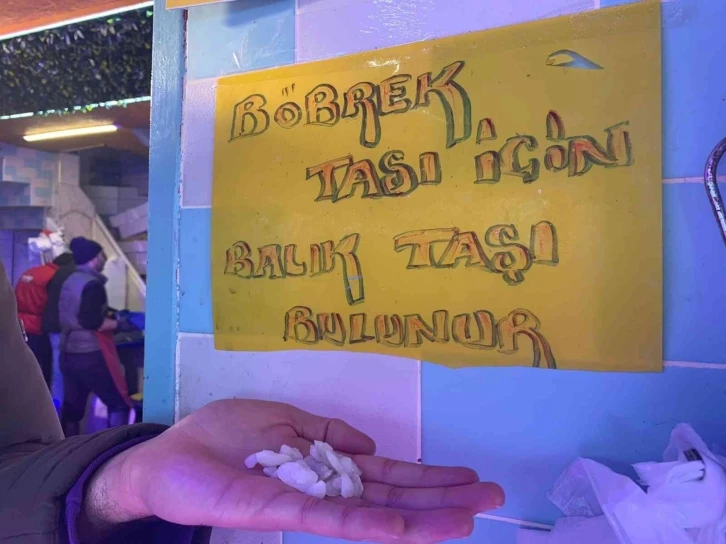 BÖBREK
TAŞI İÇİN
BALIK TAŞI
BULUNUR